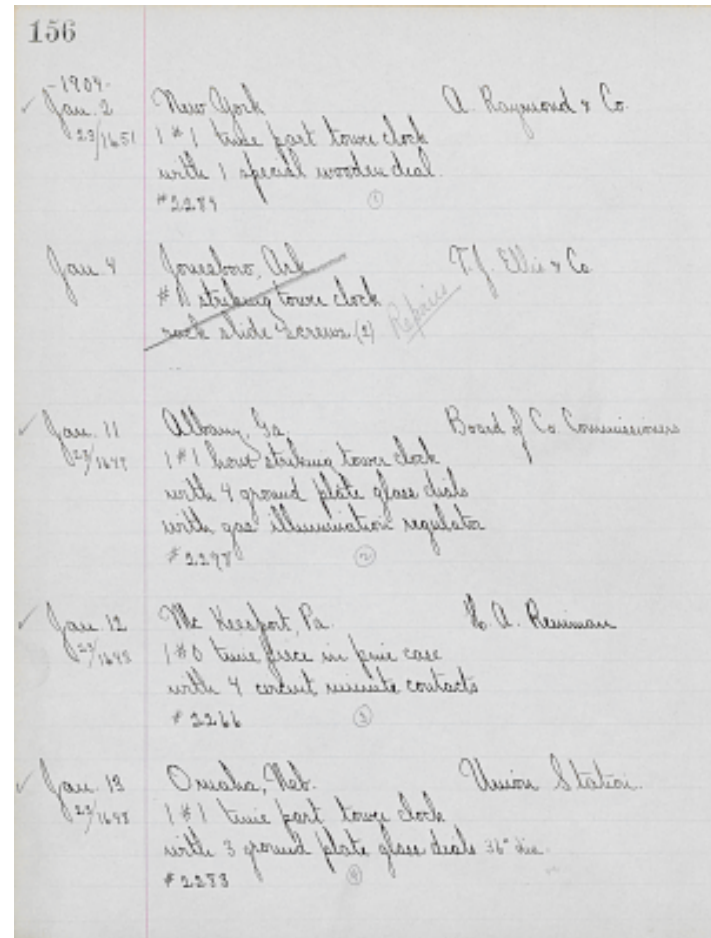 156
-1904-
Jan. 2 New York A. Raymond & Co.
23/1651 1 #1 time part tower clock
with 1 special wooden dial.
#2289 1
Jan. 4 Jonesboro, Ark T. J. Ellis & Co
#11 striking tower clock
rack slide screws (2) Repairs
Jan. 11 Albany, Ga. Board of Co. Commissioners
1 #1 hour striking tower clock
with 4 ground plate glass dials
with gas illumination regulator
2
Jan. 12 Mc Keesport, Pa. A.
1 #0 time piece in pine case
with 4 circuit minute contacts
#2266 3
Jan. 13 Omaha, Neb. Union Station.
1 #1 time part tower clock
with 3 ground plate glass dials 36" dia.
#2283 4